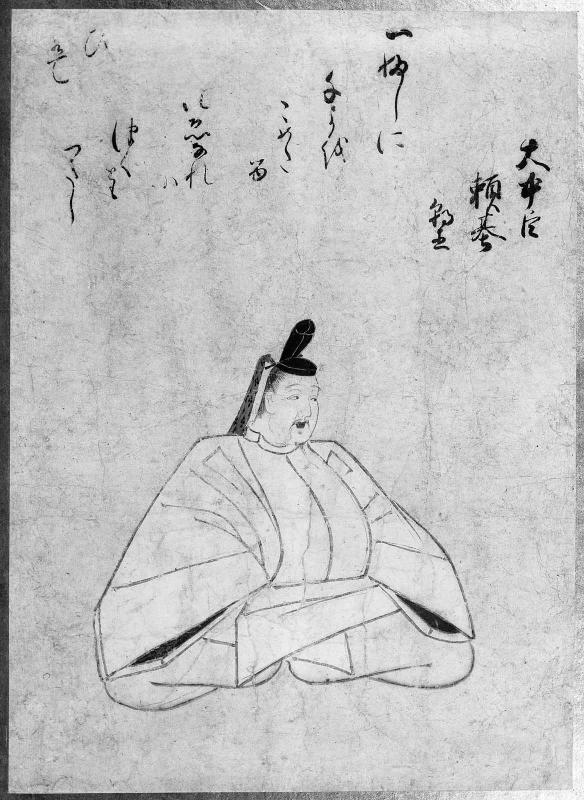 大中臣
頼基
朝臣
一ふしに
千よを
こめた
る
つゑなれ
ハ
つくとも
つきし